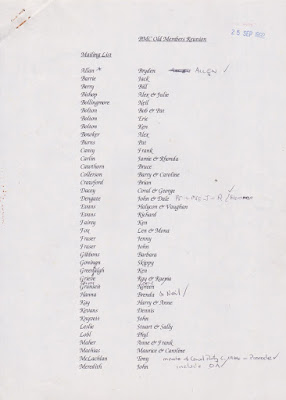 BMC Old Members Reunion
26 SEP
Mailing List
Allan Bryden ALLEN
Barrie Jack
Berry Bill
Bishop Alex & Julie
Bollingmore Neil
Bolton Bob & Pat
Bolton Eric
Bolton Ken
Bowker Alex
Burns Pat
Casey Frank
Carlin Jamie & Rhonda
Cawthorn Bruce
Collerson Barry & Caroline
Crawford Brian
Dacey Coral & George
Dengate John & Dale
Evans Halycon & Vaughan
Evans Richard
Fairey Ken
Fox Len & Mona
Fraser Jenny
Fraser John
Gibbons Barbara
Gorman Skippy
Greenleigh Ken
Greive Ray & Karyna
Noreen
Hanna Brenda
Kay Harry & Anne
Kevans Dennis
John
Leslie Stuart & Sally
Lobl Phyl
Maher Anne & Frank
Maurice & Caroline
McLachlan Tony
Meredith John include